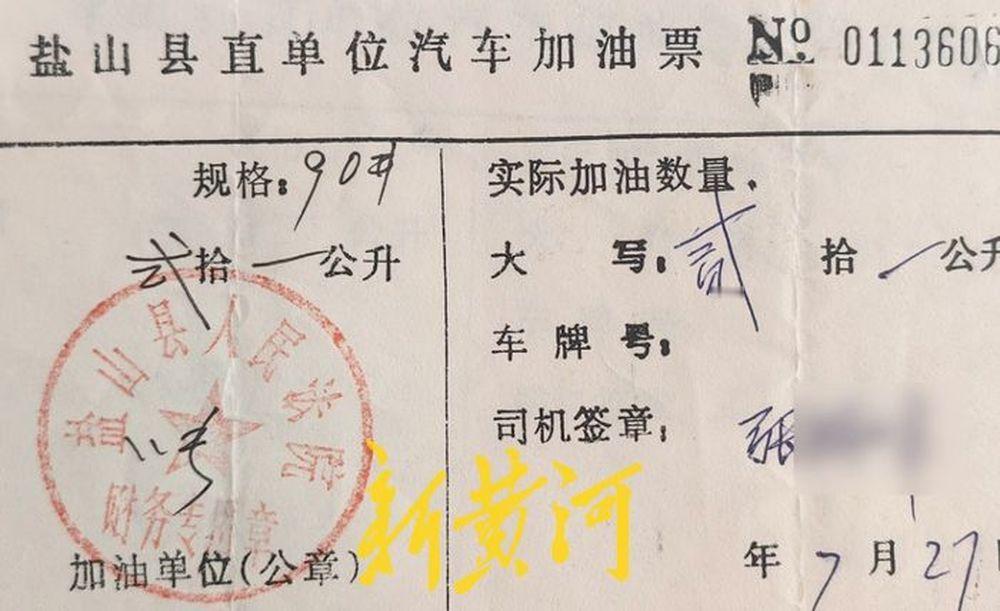 盐山县直单位汽车加油票 № 0113606
规格：90#
实际加油数量.
贰拾一公升
大写：贰拾一公升
车牌号：
盐山县人民法院
财务专用章
司机签章：张
新黄河
加油单位(公章)
年7月27日